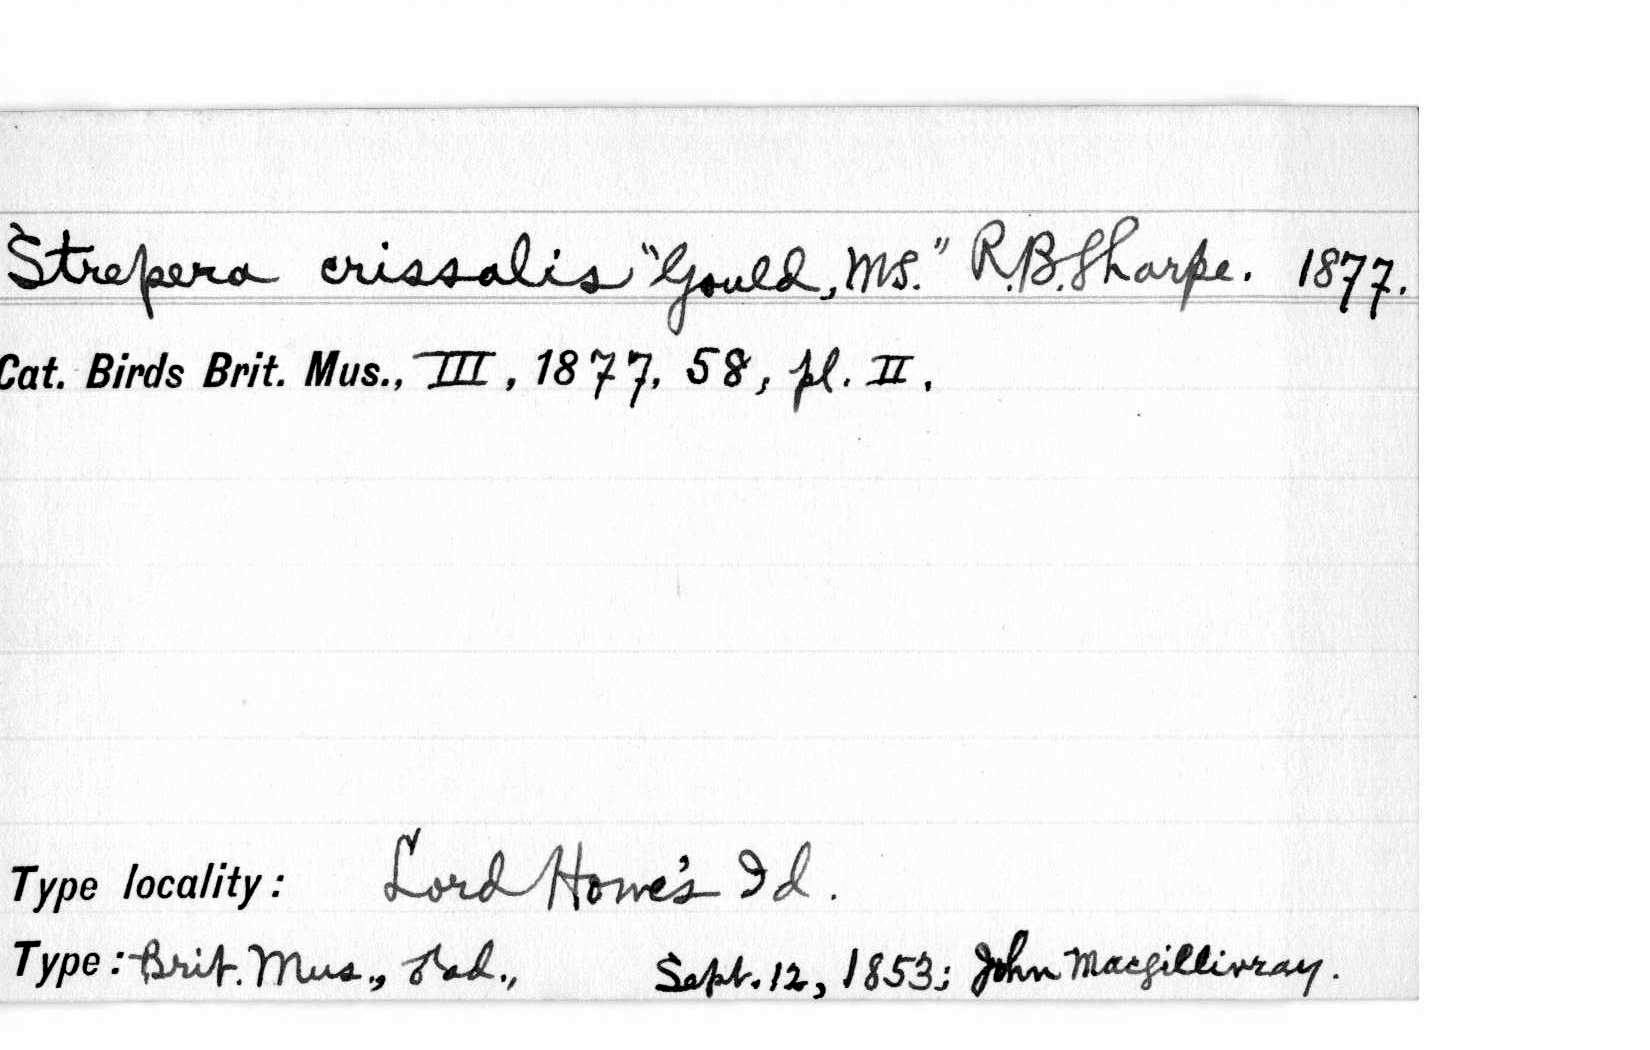 Strepera crissalis "Gould, MS." R.B. Sharpe. 1877.
Cat. Birds Brit. Mus., III, 1877, 58, pl. II.
Type locality: Lord Howe's Id.
Type: Brit. Mus., ♂ad., Sept. 12, 1853; John Macgillivray.